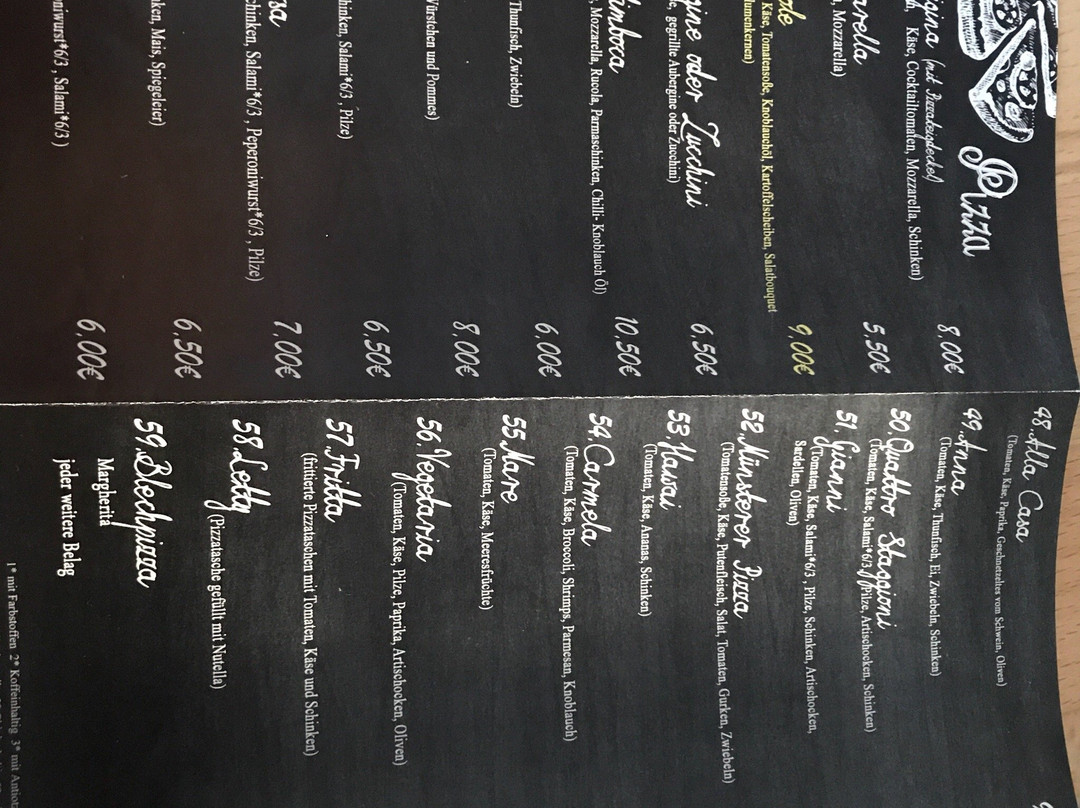 Pizza
(mit Pizzateigdeckel)
Käse, Cocktailtomaten, Mozzarella, Schinken)
8,00€
Mozzarella)
5,50€
Käse, Tomatensoße, Knoblauchöl, Kartoffelscheiben, Salatbouquet
9,00€
oder Zucchini
gegrillte Aubergine oder Zucchini)
6,50€
Mozzarella, Rucola, Parmaschinken, Chilli- Knoblauch Öl)
10,50€
Thunfisch, Zwiebeln)
6,00€
Würstchen und Pommes)
8,00€
Salami*6/3 , Pilze)
6,50€
Salami*6/3 , Peperoniwurst*6/3 , Pilze)
7,00€
Mais, Spiegeleier)
6,50€
Salami*6/3 )
6,00€
48. Alla Casa
(Tomaten, Käse, Paprika, Geschnetzeltes vom Schwein, Oliven)
49. Anna
(Tomaten, Käse, Thunfisch, Ei, Zwiebeln, Schinken)
50. Quattro Staggioni
(Tomaten, Käse, Salami*6/3, Pilze, Artischocken, Schinken)
51. Gianni
(Tomaten, Käse, Salami*6/3 , Pilze, Schinken, Artischocken,
Sardellen, Oliven)
52. Münsterer Pizza
(Tomatensoße, Käse, Putenfleisch, Salat, Tomaten, Gurken, Zwiebeln)
53. Hawai
(Tomaten, Käse, Ananas, Schinken)
54. Carmela
(Tomaten, Käse, Broccoli, Shrimps, Parmesan, Knoblauch)
55. Mare
(Tomaten, Käse, Meeresfrüchte)
56. Vegetaria
(Tomaten, Käse, Pilze, Paprika, Artischocken, Oliven)
57. Fritta
(frittierte Pizzataschen mit Tomaten, Käse und Schinken)
58. Letty
(Pizzatasche gefüllt mit Nutella)
59. Blechpizza
Margherita
jeder weitere Belag
1* mit Farbstoffen 2* Koffeinhaltig 3* mit